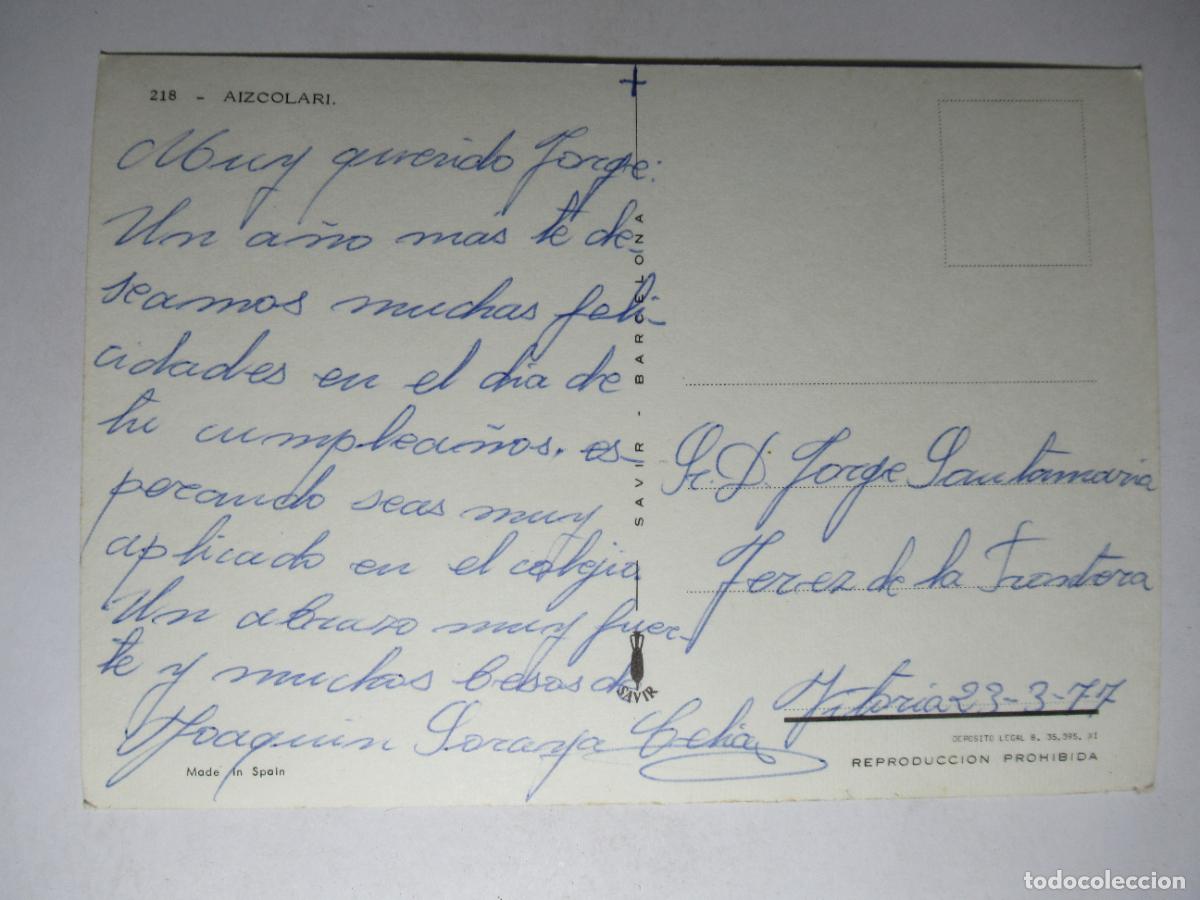 218 - AIZCOLARI.
Muy querido Jorge:
Un año más te de-
seamos muchas feli-
cidades en el dia de
tu cumpleaños. es-
perando seas muy
aplicado en el colegio
Un abrazo muy fuer-
te y muchos besos de
Joaquin Soraya Celia
Made in Spain
SAVIR - BARCELONA
SAVIR
Sr. D. Jorge Santamaria
Jerez de la Frontera
Vitoria 23-3-77
DEPOSITO LEGAL B. 35.395. XI
REPRODUCCION PROHIBIDA
todocoleccion